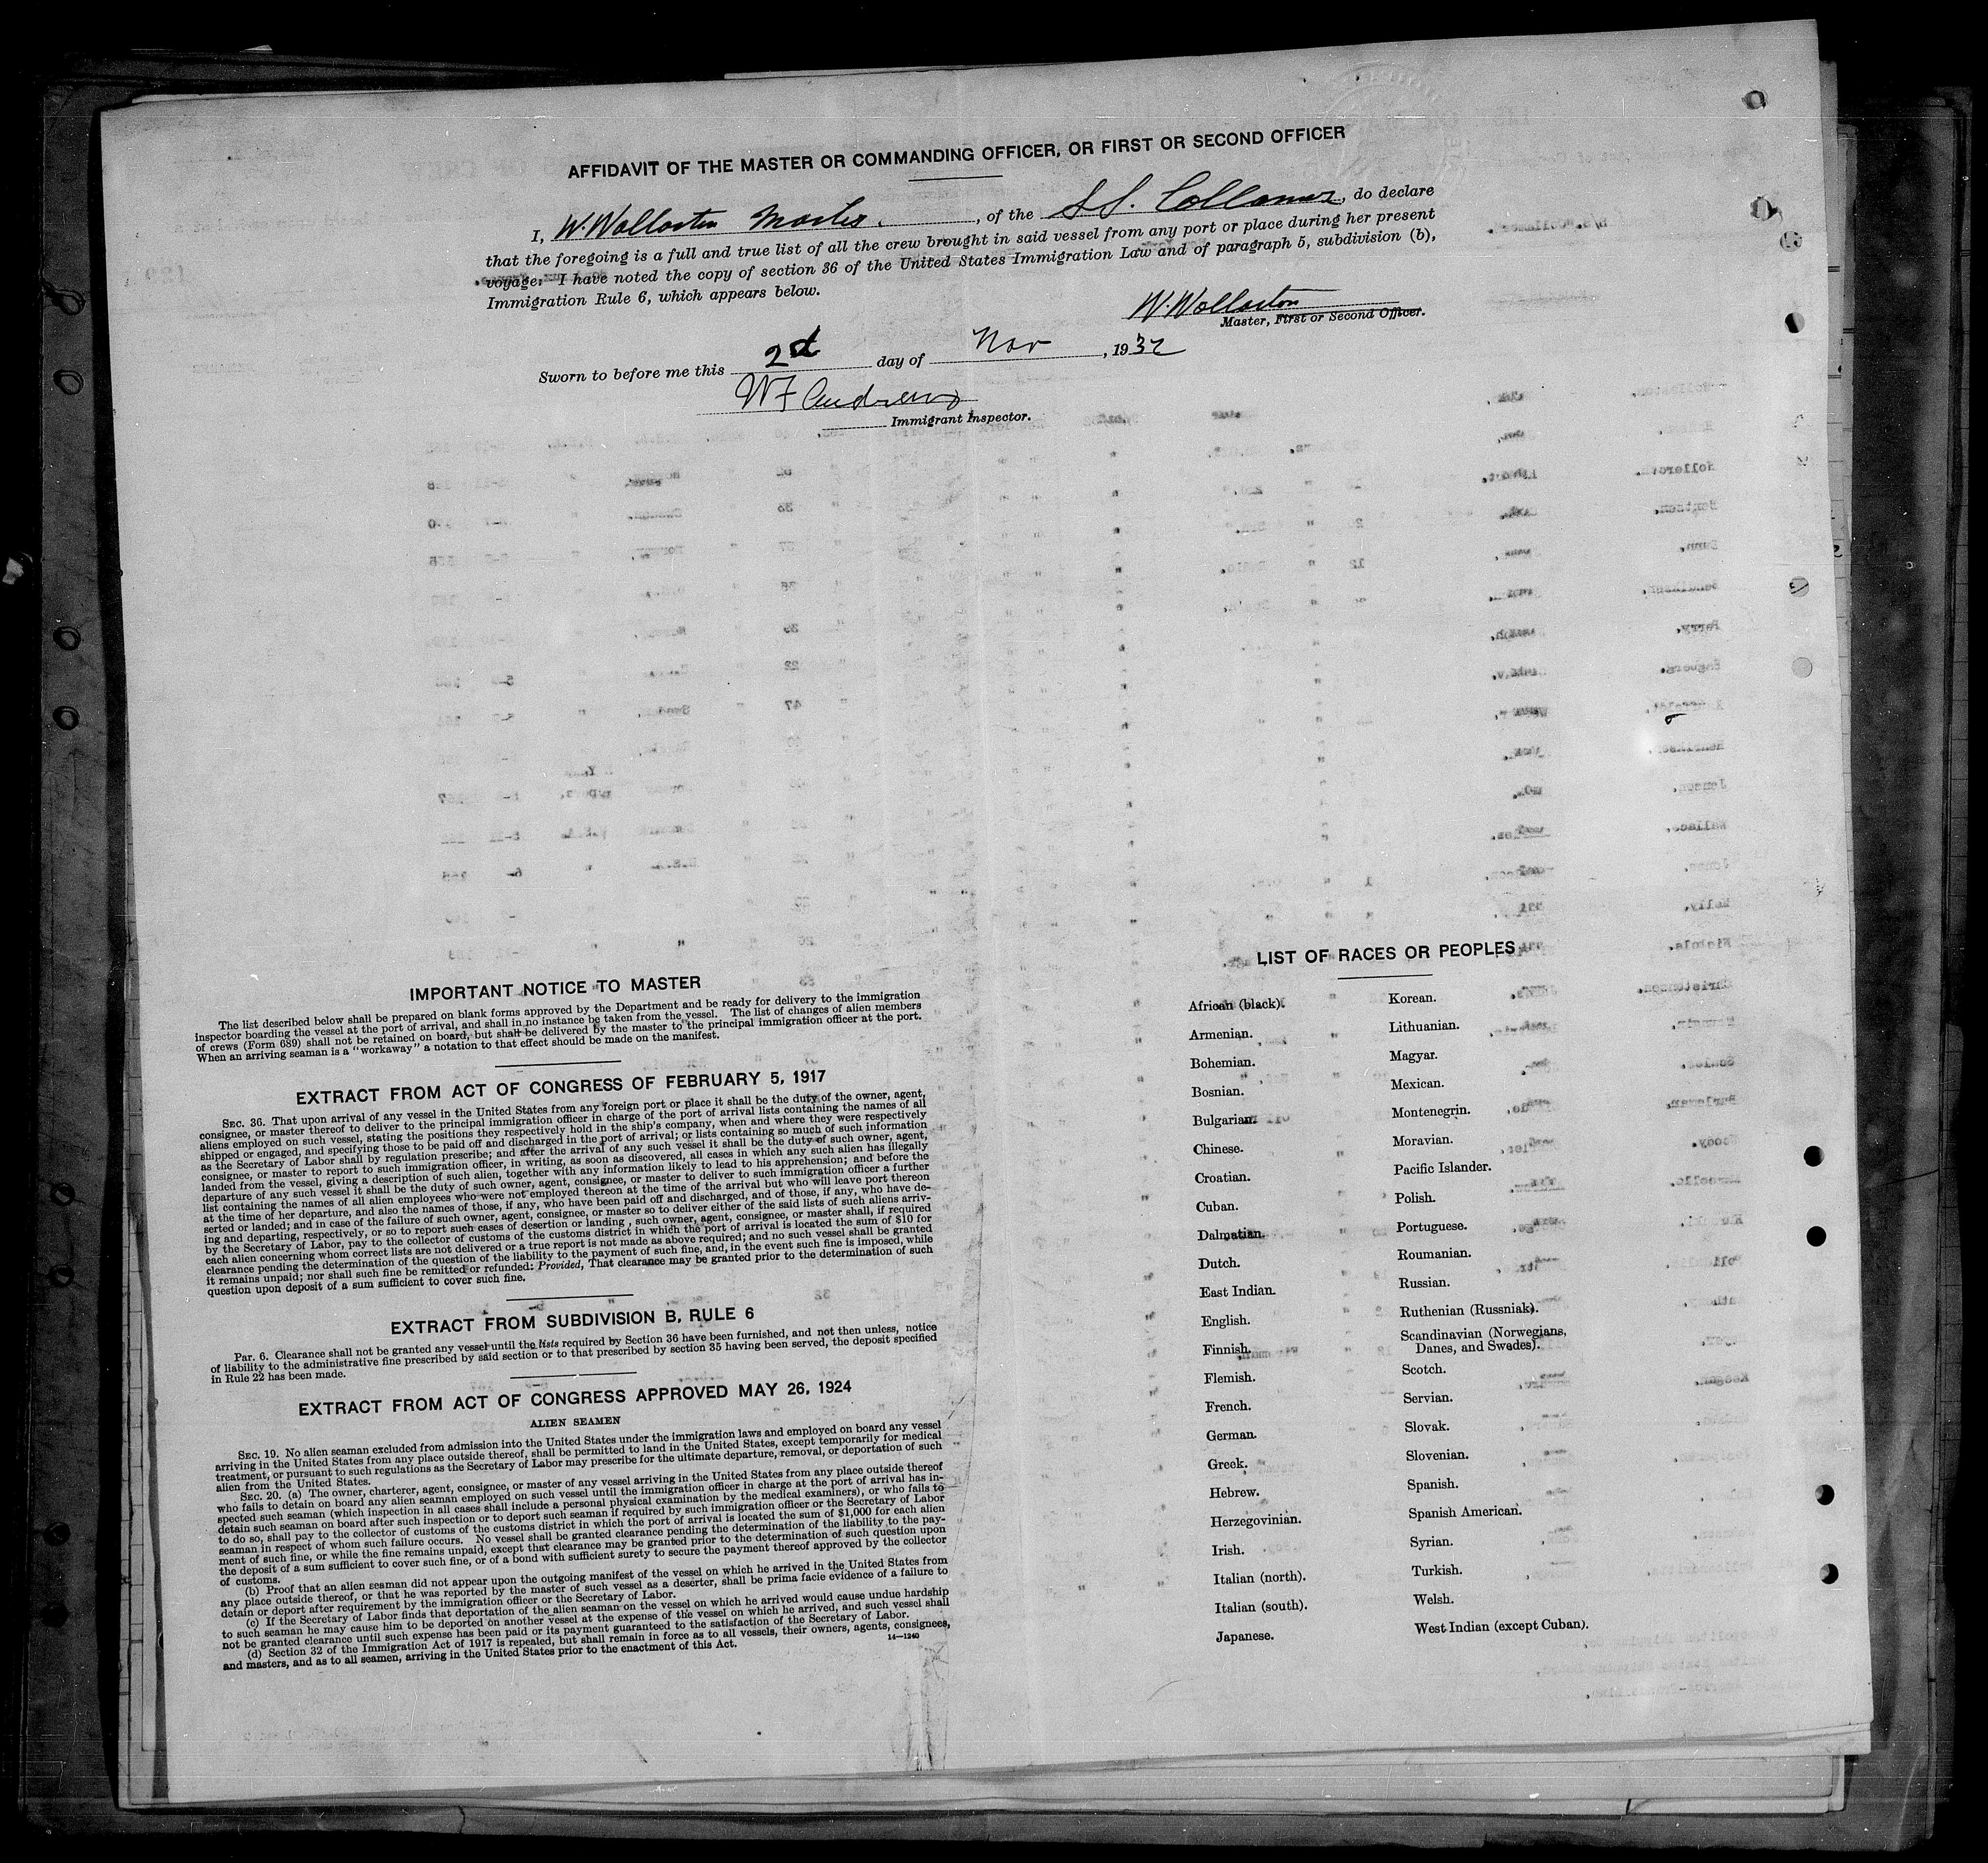 AFFIDAVIT OF THE MASTER OR COMMANDING OFFICER, OR FIRST OR SECOND OFFICER
I, W. Wollaston Master. , of the SS. Collamer, do declare
that the foregoing is a full and true list of all the crew brought in said vessel from any port or place during her present
voyage. I have noted the copy of section 36 of the United States Immigration Law and of paragraph 5, subdivision (b),
Immigration Rule 6, which appears below.
W. Wollaston
Master, First or Second Officer.
Sworn to before me this 2d day of Nov, 1932
W F Andrews
Immigrant Inspector.
IMPORTANT NOTICE TO MASTER
The list described below shall be prepared on blank forms approved by the Department and be ready for delivery to the immigration
inspector boarding the vessel at the port of arrival, and shall in no instance be taken from the vessel. The list of changes of alien members
of crews (Form 689) shall not be retained on board, but shall be delivered by the master to the principal immigration officer at the port.
When an arriving seaman is a "workaway" a notation to that effect should be made on the manifest.
EXTRACT FROM ACT OF CONGRESS OF FEBRUARY 5, 1917
SEC. 36. That upon arrival of any vessel in the United States from any foreign port or place it shall be the duty of the owner, agent,
consignee, or master thereof to deliver to the principal immigration officer in charge of the port of arrival lists containing the names of all
aliens employed on such vessel, stating the positions they respectively hold in the ship's company, when and where they were respectively
shipped or engaged, and specifying those to be paid off and discharged in the port of arrival; or lists containing so much of such information
as the Secretary of Labor shall by regulation prescribe; and after the arrival of any such vessel it shall be the duty of such owner, agent,
consignee, or master to report to such immigration officer, in writing, as soon as discovered, all cases in which any such alien has illegally
landed from the vessel, giving a description of such alien, together with any information likely to lead to his apprehension; and before the
departure of any such vessel it shall be the duty of such owner, agent, consignee, or master to deliver to such immigration officer a further
list containing the names of all alien employees who were not employed thereon at the time of the arrival but who will leave port thereon
at the time of her departure, and also the names of those, if any, who have been paid off and discharged, and of those, if any, who have de-
serted or landed; and in case of the failure of such owner, agent, consignee, or master so to deliver either of the said lists of such aliens arriv-
ing and departing, respectively, or so to report such cases of desertion or landing, such owner, agent, consignee, or master shall, if required
by the Secretary of Labor, pay to the collector of customs of the customs district in which the port of arrival is located the sum of $10 for
each alien concerning whom correct lists are not delivered or a true report is not made as above required; and no such vessel shall be granted
clearance pending the determination of the question of the liability to the payment of such fine, and, in the event such fine is imposed, while
it remains unpaid; nor shall such fine be remitted or refunded: Provided, That clearance may be granted prior to the determination of such
question upon deposit of a sum sufficient to cover such fine.
EXTRACT FROM SUBDIVISION B, RULE 6
Par. 6. Clearance shall not be granted any vessel until the lists required by Section 36 have been furnished, and not then unless, notice
of liability to the administrative fine prescribed by said section or to that prescribed by section 35 having been served, the deposit specified
in Rule 22 has been made.
EXTRACT FROM ACT OF CONGRESS APPROVED MAY 26, 1924
ALIEN SEAMEN
SEC. 19. No alien seaman excluded from admission into the United States under the immigration laws and employed on board any vessel
arriving in the United States from any place outside thereof, shall be permitted to land in the United States, except temporarily for medical
treatment, or pursuant to such regulations as the Secretary of Labor may prescribe for the ultimate departure, removal, or deportation of such
alien from the United States.
SEC. 20. (a) The owner, charterer, agent, consignee, or master of any vessel arriving in the United States from any place outside thereof
who fails to detain on board any alien seaman employed on such vessel until the immigration officer in charge at the port of arrival has in-
spected such seaman (which inspection in all cases shall include a personal physical examination by the medical examiners), or who fails to
detain such seaman on board after such inspection or to deport such seaman if required by such immigration officer or the Secretary of Labor
to do so, shall pay to the collector of customs of the customs district in which the port of arrival is located the sum of $1,000 for each alien
seaman in respect of whom such failure occurs. No vessel shall be granted clearance pending the determination of the liability to the pay-
ment of such fine, or while the fine remains unpaid, except that clearance may be granted prior to the determination of such question upon
the deposit of a sum sufficient to cover such fine, or of a bond with sufficient surety to secure the payment thereof approved by the collector
of customs.
(b) Proof that an alien seaman did not appear upon the outgoing manifest of the vessel on which he arrived in the United States from
any place outside thereof, or that he was reported by the master of such vessel as a deserter, shall be prima facie evidence of a failure to
detain or deport after requirement by the immigration officer or the Secretary of Labor.
(c) If the Secretary of Labor finds that deportation of the alien seaman on the vessel on which he arrived would cause undue hardship
to such seaman he may cause him to be deported on another vessel at the expense of the vessel on which he arrived, and such vessel shall
not be granted clearance until such expense has been paid or its payment guaranteed to the satisfaction of the Secretary of Labor.
(d) Section 32 of the Immigration Act of 1917 is repealed, but shall remain in force as to all vessels, their owners, agents, consignees,
and masters, and as to all seamen, arriving in the United States prior to the enactment of this Act.
14—1240
LIST OF RACES OR PEOPLES
African (black).
Armenian.
Bohemian.
Bosnian.
Bulgarian.
Chinese.
Croatian.
Cuban.
Dalmatian.
Dutch.
East Indian.
English.
Finnish.
Flemish.
French.
German.
Greek.
Hebrew.
Herzegovinian.
Irish.
Italian (north).
Italian (south).
Japanese.
Korean.
Lithuanian.
Magyar.
Mexican.
Montenegrin.
Moravian.
Pacific Islander.
Polish.
Portuguese.
Roumanian.
Russian.
Ruthenian (Russniak).
Scandinavian (Norwegians,
Danes, and Swedes).
Scotch.
Servian.
Slovak.
Slovenian.
Spanish.
Spanish American.
Syrian.
Turkish.
Welsh.
West Indian (except Cuban).